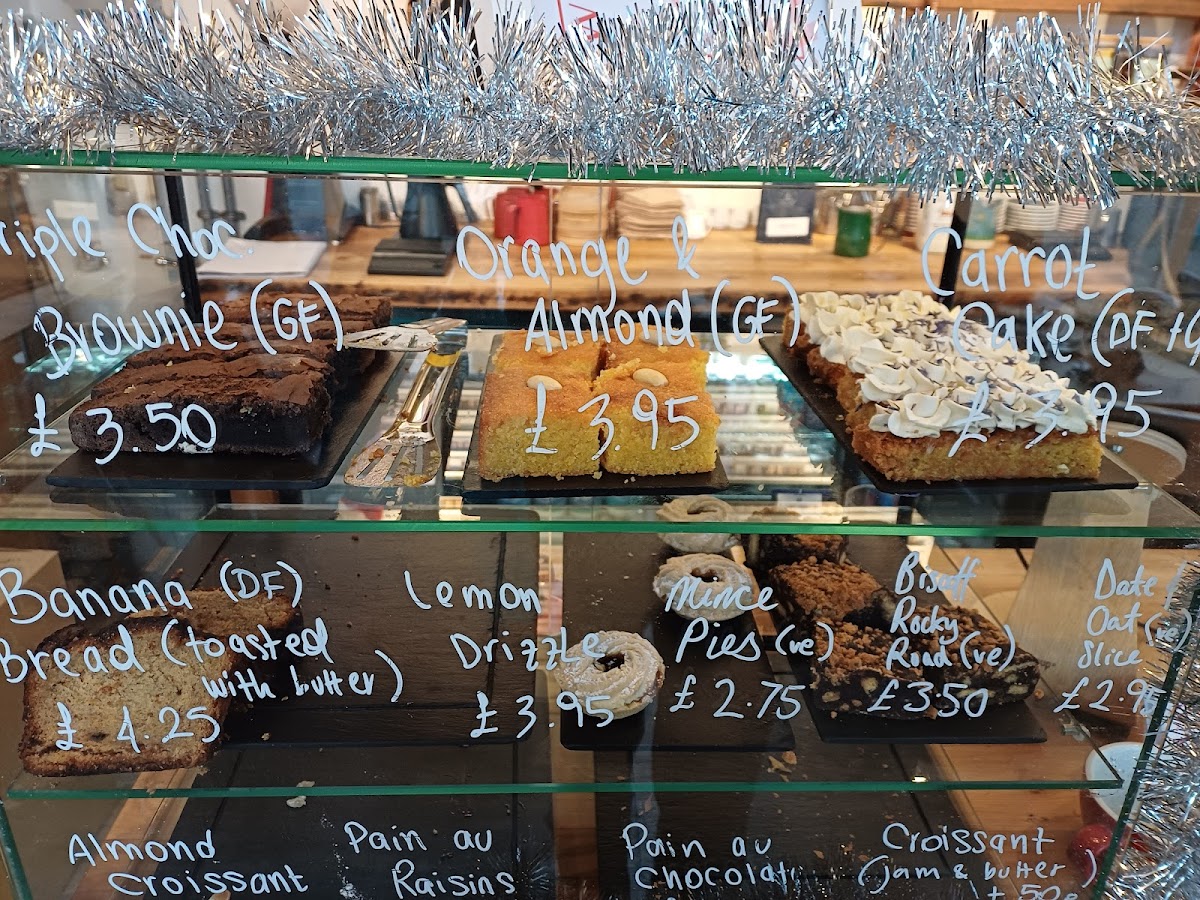 riple Choc
Brownie (GF)
£3.50
Orange &
Almond (GF)
£3.95
Carrot
Cake (DF +G
£3.95
Banana (DF)
Bread (toasted
with butter)
£4.25
Lemon
Drizzle
£3.95
Mince
Pies (ve)
£2.75
Biscoff
Rocky
Road (ve)
£3.50
Date &
Oat (ve)
Slice
£2.95
Almond
Croissant
Pain au
Raisins
Pain au
Chocolat
Croissant
(jam & butter)
+ 50p